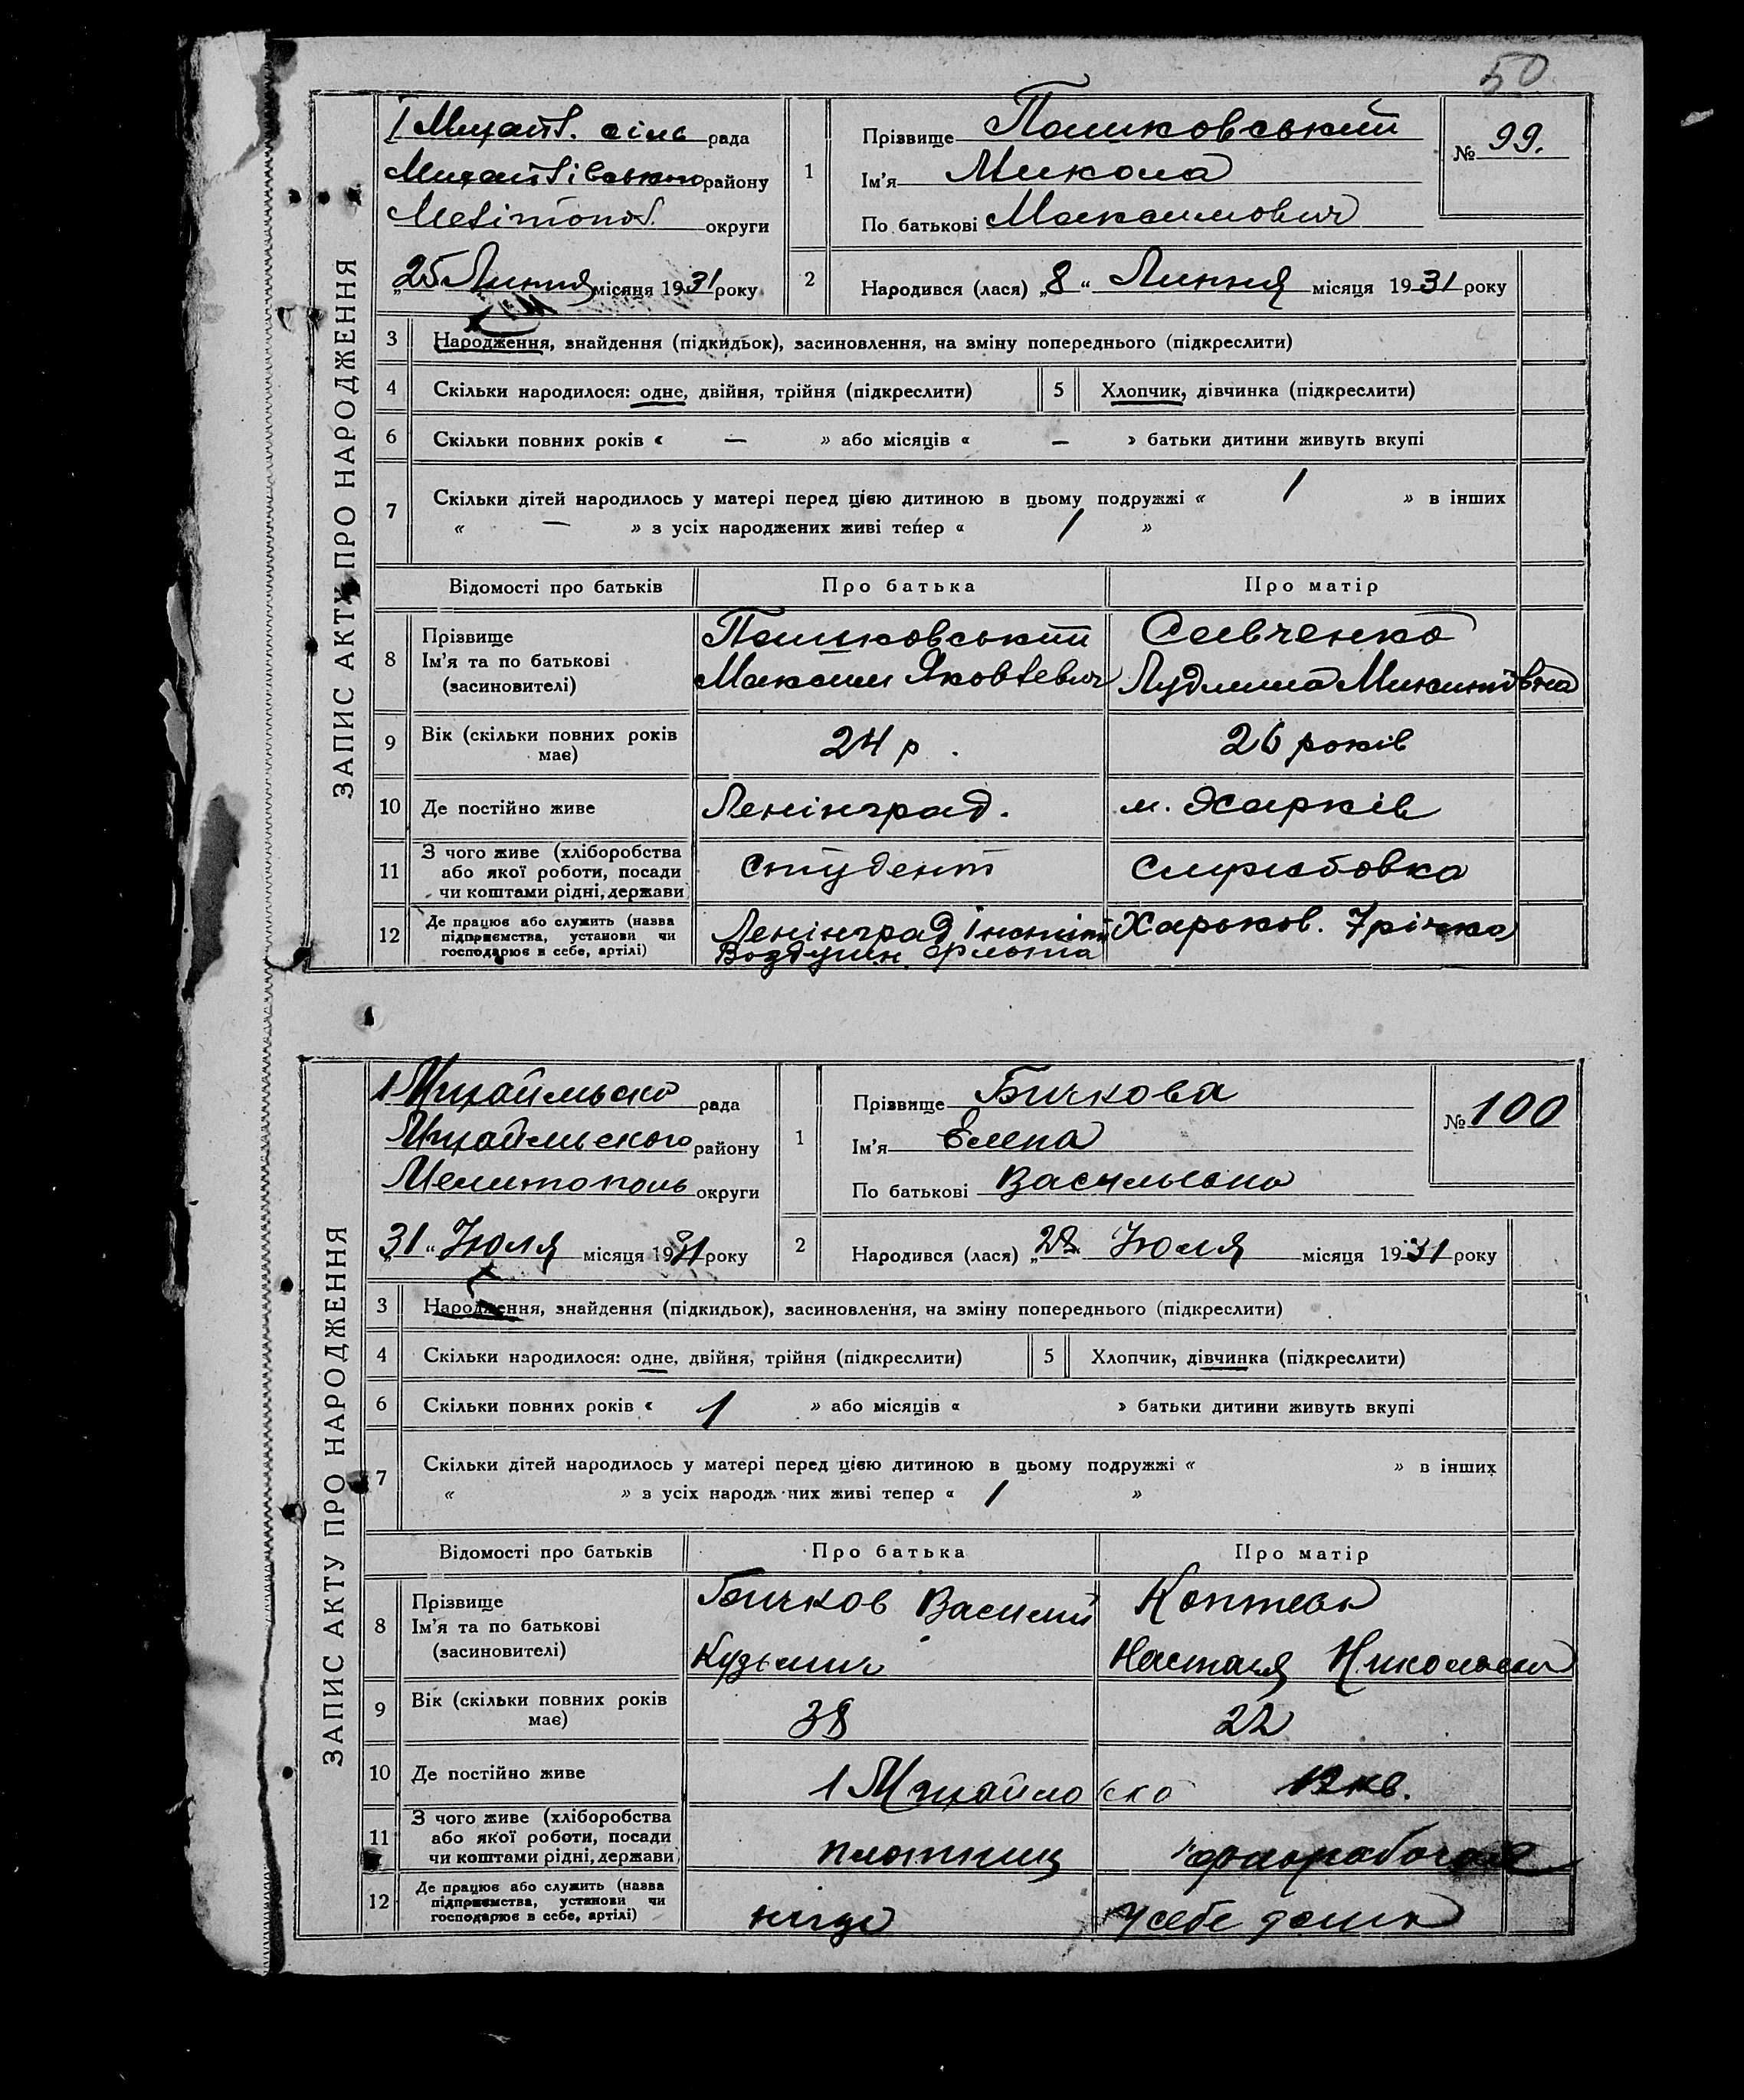 50
ЗАПИС АКТУ ПРО НАРОДЖЕННЯ
I Михайл. сіль рада
Михайлівського району
Мелітопол. округи
„25 Липня місяця 1931 року
1
Прізвище Пашковський
Ім'я Микола
По батькові Максимович
№ 99.
2
Народився (лася) „8“ Липня місяця 1931 року
3 Народження, знайдення (підкидьок), засиновлення, на зміну попереднього (підкреслити)
4 Скільки народилося: одне, двійня, трійня (підкреслити) 5 Хлопчик, дівчинка (підкреслити)
6 Скільки повних років « — » або місяців « — » батьки дитини живуть вкупі
7 Скільки дітей народилось у матері перед цією дитиною в цьому подружжі « 1 » в інших
« — » з усіх народжених живі тепер « 1 »
Відомості про батьків Про батька Про матір
8 Прізвище
Ім'я та по батькові
(засновителі)
Пашковський
Максим Яковлевич
Савченко
Людмила Микитівна
9 Вік (скільки повних років
має)
24 р.
26 років
10 Де постійно живе Ленінград. м. Харків
11 З чого живе (хліборобства
або якої роботи, посади
чи коштами рідні, держави
студент
Службовка
12 Де працює або служить (назва
підприємства, установи чи
господарює в себе, артілі)
Ленінград Інстит
Воздушн. Флота
Харьков. 7 річка
ЗАПИС АКТУ ПРО НАРОДЖЕННЯ
1 Михайльско рада
Михайльского району
Мелитополь округи
„31“ Июля місяця 1931 року
1
Прізвище Бичкова
Ім'я Елена
По батькові Васильевна
№ 100
2
Народився (лася) „28 Июля місяця 1931 року
3 Народження, знайдення (підкидьок), засиновлення, на зміну попереднього (підкреслити)
4 Скільки народилося: одне, двійня, трійня (підкреслити) 5 Хлопчик, дівчинка (підкреслити)
6 Скільки повних років « 1 » або місяців « » батьки дитини живуть вкупі
7 Скільки дітей народилось у матері перед цією дитиною в цьому подружжі « » в інших
« » з усіх народж них живі тепер « 1 »
Відомості про батьків Про батька Про матір
8 Прізвище
Ім'я та по батькові
(засиновителі)
Бичков Василий
Кузьмич
Коптева
Настася Николаевна
9 Вік (скільки повних років
має)
38
22
10 Де постійно живе 1 Михайловско 12 кв.
11 З чого живе (хліборобства
або якої роботи, посади
чи коштами рідні, держави
плотниц
12 Де працює або служить (назва
підприємства, установи чи
господарює в себе, артілі)
нигде
у себе дома